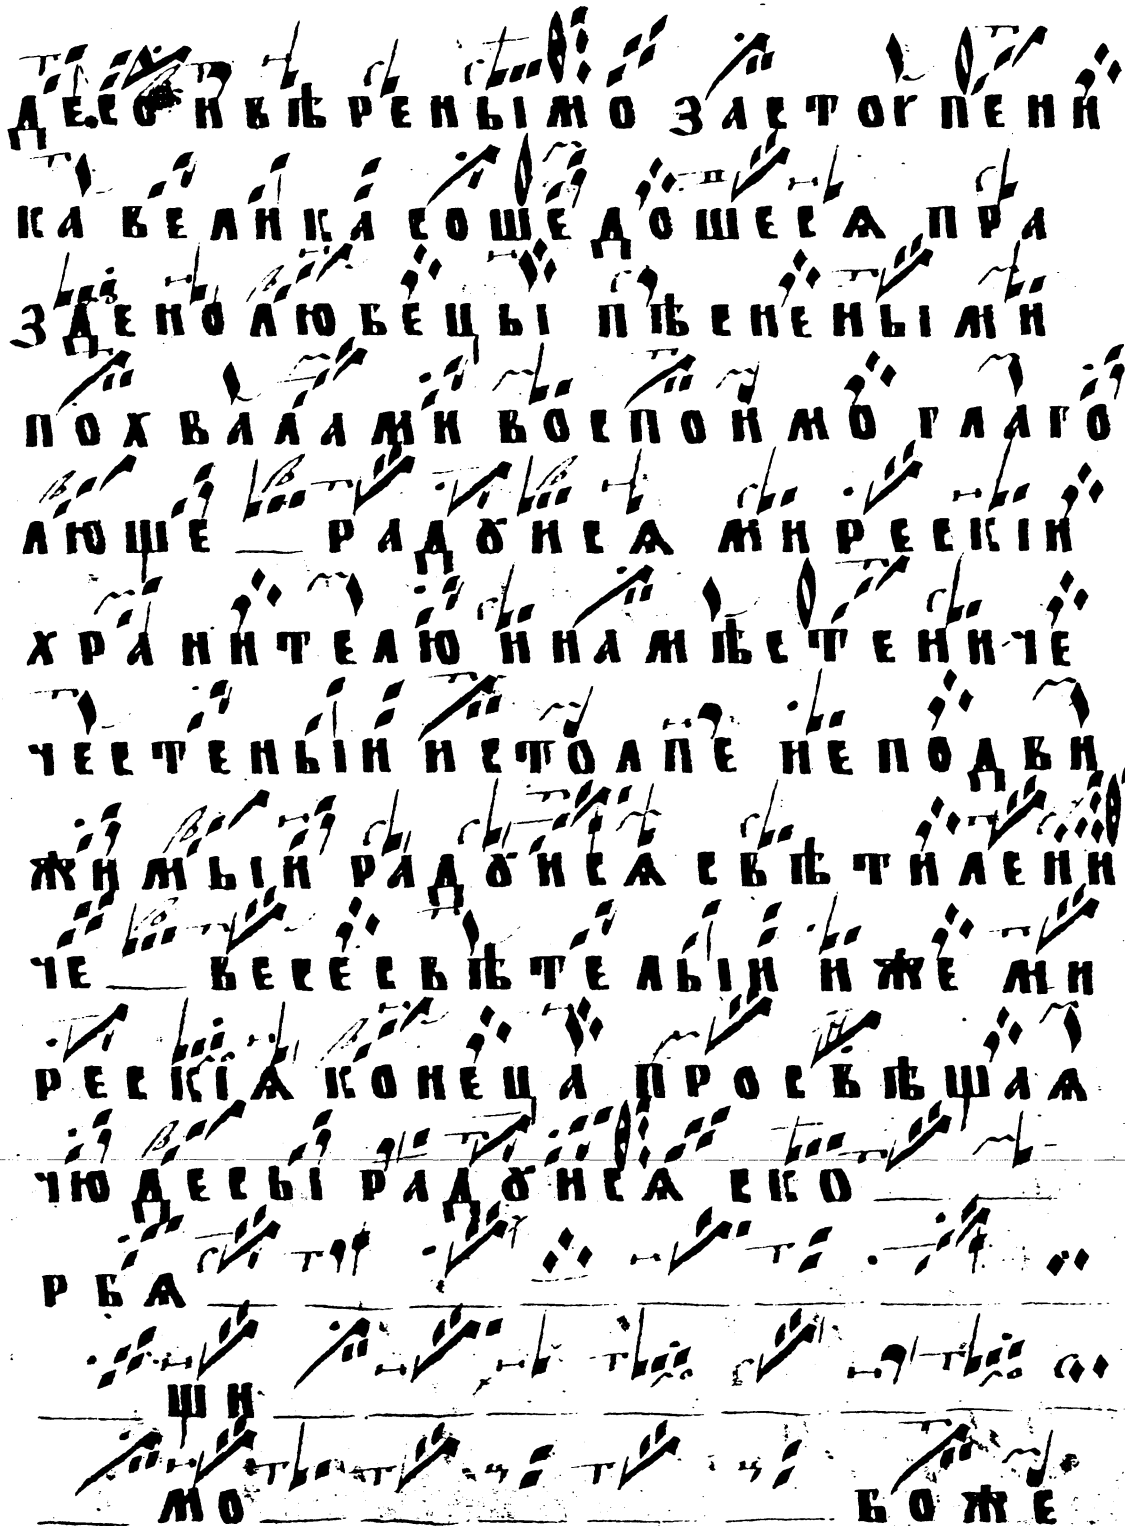 ДЕСО ИВѢРЕНЫМО ЗАСТОГПЕНИ
КА ВЕЛИКА СОШЕДОШЕСѦ ПРА
ЗДЕНОЛЮБЕЦЫ ПѢСНЕНЫМИ
ПОХВАЛАМИ ВОСПОИМО ГЛАГО
ЛЮЩЕ РАДꙊИСѦ МИРЕСКІИ
ХРАНИТЕЛЮ ИНАМѢСТЕНИЧЕ
ЧЕСТЕНЫИ ИСТОЛПЕ НЕПОДВИ
ЖИМЫИ РАДꙊИСѦ СВѢТИЛЕНИ
ЧЕ ВЕСЕСВѢТЕЛЫИ ИЖЕ МИ
РЕСКІѦ КОНЕЦА ПРОСВѢЩАѦ
ЧЮДЕСЫ РАДꙊИСѦ СКО
РБѦ
ЩИ
МО БОЖЕ